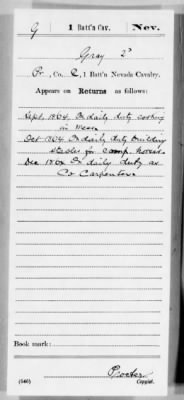 G | 1 Batt'n Cav. | Nev.
Gray J
Pv., Co. C, 1 Batt'n Nevada Cavalry.
Appears on Returns as follows:
Sept, 1864, On daily duty cooking
in Mess
Oct 1864 On daily duty building
stables for Comp. horses
Dec 1864 On daily duty as
Co Carpenter.
Book mark:
Procter
(546) Copyist.